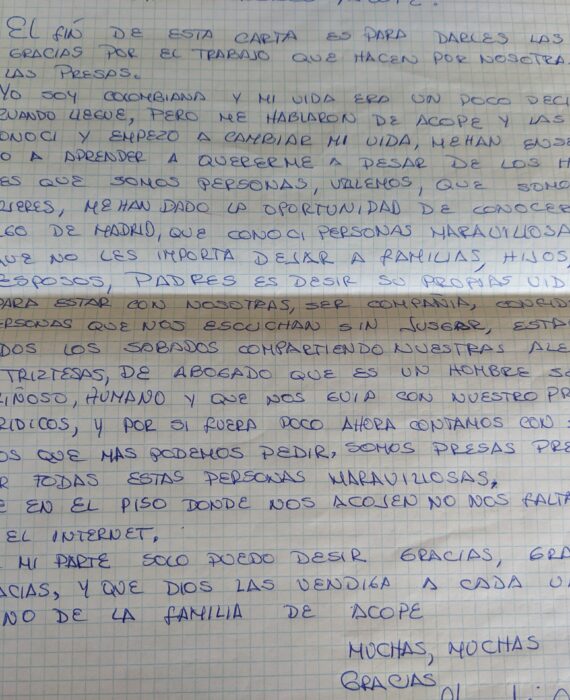 EL FIÑ DE ESTA CARTA ES PARA DARLES LAS
GRACIAS POR EL TRABAJO QUE HACEN POR NOSOTRA
LAS PRESAS.
YO SOY COLOMBIANA Y MI VIDA ERA UN POCO DECI
CUANDO LLEGUE, PERO ME HABLARON DE ACOPE Y LAS
ONOCI Y EMPEZO A CAMBIAR MI VIDA, ME HAN ENSE
O A APRENDER A QUERERME A PESAR DE LOS H
ES QUE SOMOS PERSONAS, VALEMOS, QUE SOMO
JERES, ME HAN DADO LA OPORTUNIDAD DE CONOCER
GO DE MADRID, QUE CONOCI PERSONAS MARAVILLOSA
QUE NO LES IMPORTA DEJAR A FAMILIAS, HIJOS,
ESPOSOS, PADRES ES DESIR SU PROPIAS VID
PARA ESTAR CON NOSOTRAS, SER COMPAÑIA, CONFID
ERSONAS QUE NOS ESCUCHAN SIN JUSGAR, ESTA
DOS LOS SABADOS COMPARTIENDO NUESTRAS ALE
TRIZTESAS, DE ABOGADO QUE ES UN HOMBRE SO
RIÑOSO, HUMANO Y QUE NOS GUIA CON NUESTRO PR
RIDICOS, Y POR SI FUERA POCO AHORA CONTAMOS CON
OS QUE MAS PODEMOS PEDIR, SOMOS PRESAS PRE
R TODAS ESTAS PERSONAS MARAVILLOSAS,
E EN EL PISO DONDE NOS ACOJEN NO NOS FALTA
EL INTERNET.
MI PARTE SOLO PUEDO DESIR GRACIAS, GRA
ACIAS, Y QUE DIOS LAS VENDIGA A CADA U
NO DE LA FAMILIA DE ACOPE
MUCHAS, MUCHAS
GRACIAS